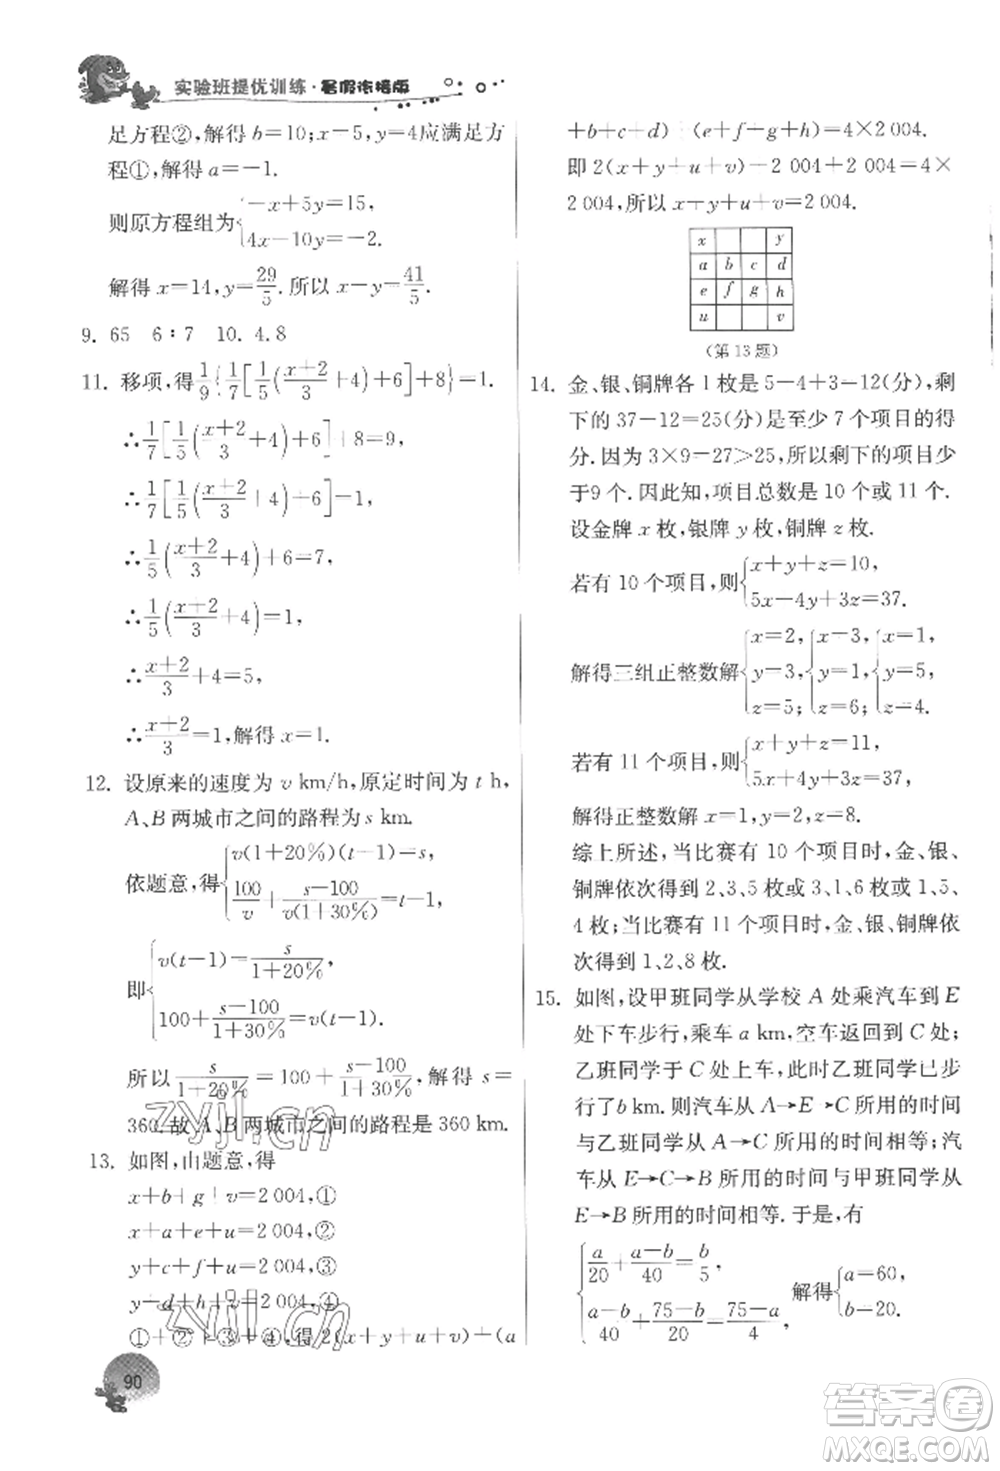 实验班提优训练·暑假衔接版
足方程②,解得 b=10;x=5,y=4应满足方
程①,解得 a=-1.
则原方程组为{-x+5y=15,
4x-10y=-2.
解得 x=14,y=29/5. 所以 x-y=41/5.
9. 65 6:7 10. 4.8
11. 移项,得1/9{1/7[1/5((x+2)/3+4)+6]+8}=1.
∴1/7[1/5((x+2)/3+4)+6]+8=9,
∴1/7[1/5((x+2)/3+4)+6]=1,
∴1/5((x+2)/3+4)+6=7,
∴1/5((x+2)/3+4)=1,
∴(x+2)/3+4=5,
∴(x+2)/3=1,解得 x=1.
12. 设原来的速度为 v km/h,原定时间为 t h,
A、B 两城市之间的路程为 s km.
依题意,得{v(1+20%)(t-1)=s,
100/v+(s-100)/(v(1+30%))=t-1,
即{v(t-1)=s/(1+20%),
100+(s-100)/(1+30%)=v(t-1).
所以 s/(1+20%)=100+(s-100)/(1+30%),解得 s=
360.故 A、B 两城市之间的路程是 360 km.
13. 如图,由题意,得
x+b+g+v=2 004,①
x+a+e+u=2 004,②
y+c+f+u=2 004,③
y+d+h+v=2 004,④
①+②+③+④,得 2(x+y+u+v)+(a
90
+b+c+d)+(e+f+g+h)=4×2 004.
即 2(x+y+u+v)+2 004+2 004=4×
2 004,所以 x+y+u+v=2 004.
x y
a b c d
e f g h
u v
(第 13 题)
14. 金、银、铜牌各 1 枚是 5+4+3=12(分),剩
下的 37-12=25(分)是至少 7 个项目的得
分. 因为 3×9=27>25,所以剩下的项目少
于9 个. 因此知,项目总数是 10 个或 11 个.
设金牌 x 枚,银牌 y 枚,铜牌 z 枚.
若有 10 个项目,则{x+y+z=10,
5x+4y+3z=37.
解得三组正整数解{x=2, y=3, z=5; {x=3, y=1, z=6; {x=1, y=5, z=4.
若有 11 个项目,则{x+y+z=11,
5x+4y+3z=37.
解得正整数解 x=1,y=2,z=8.
综上所述,当比赛有 10 个项目时,金、银、
铜牌依次得到 2、3、5 枚或 3、1、6 枚或 1、5、
4 枚;当比赛有 11 个项目时,金、银、铜牌依
次得到 1、2、8 枚.
15. 如图,设甲班同学从学校 A 处乘汽车到 E
处下车步行,乘车 a km,空车返回到 C 处;
乙班同学于 C 处上车,此时乙班同学已步
行了b km. 则汽车从 A→E→C 所用的时间
与乙班同学从 A→C 所用的时间相等;汽
车从 E→C→B 所用的时间与甲班同学从
E→B 所用的时间相等. 于是,有
{a/20+(a-b)/40=b/5,
(a-b)/40+(75-b)/20=(75-a)/4,
解得{a=60,
b=20.
zyjl.cn
zyjl.cn
答案圈
MXQE.COM